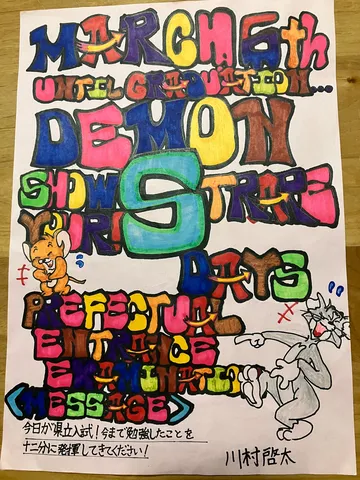 MARCH 6th
UNTIL GRADUATION...
DEMON
SHOW S TRAPE
YOUR!
DAYS
PREFECTUAL
ENTRANCE
EXAMINATIO
<MESSAGE>
今日が県立入試!今まで勉強したことを
十二分に発揮してきてください!
川村啓太